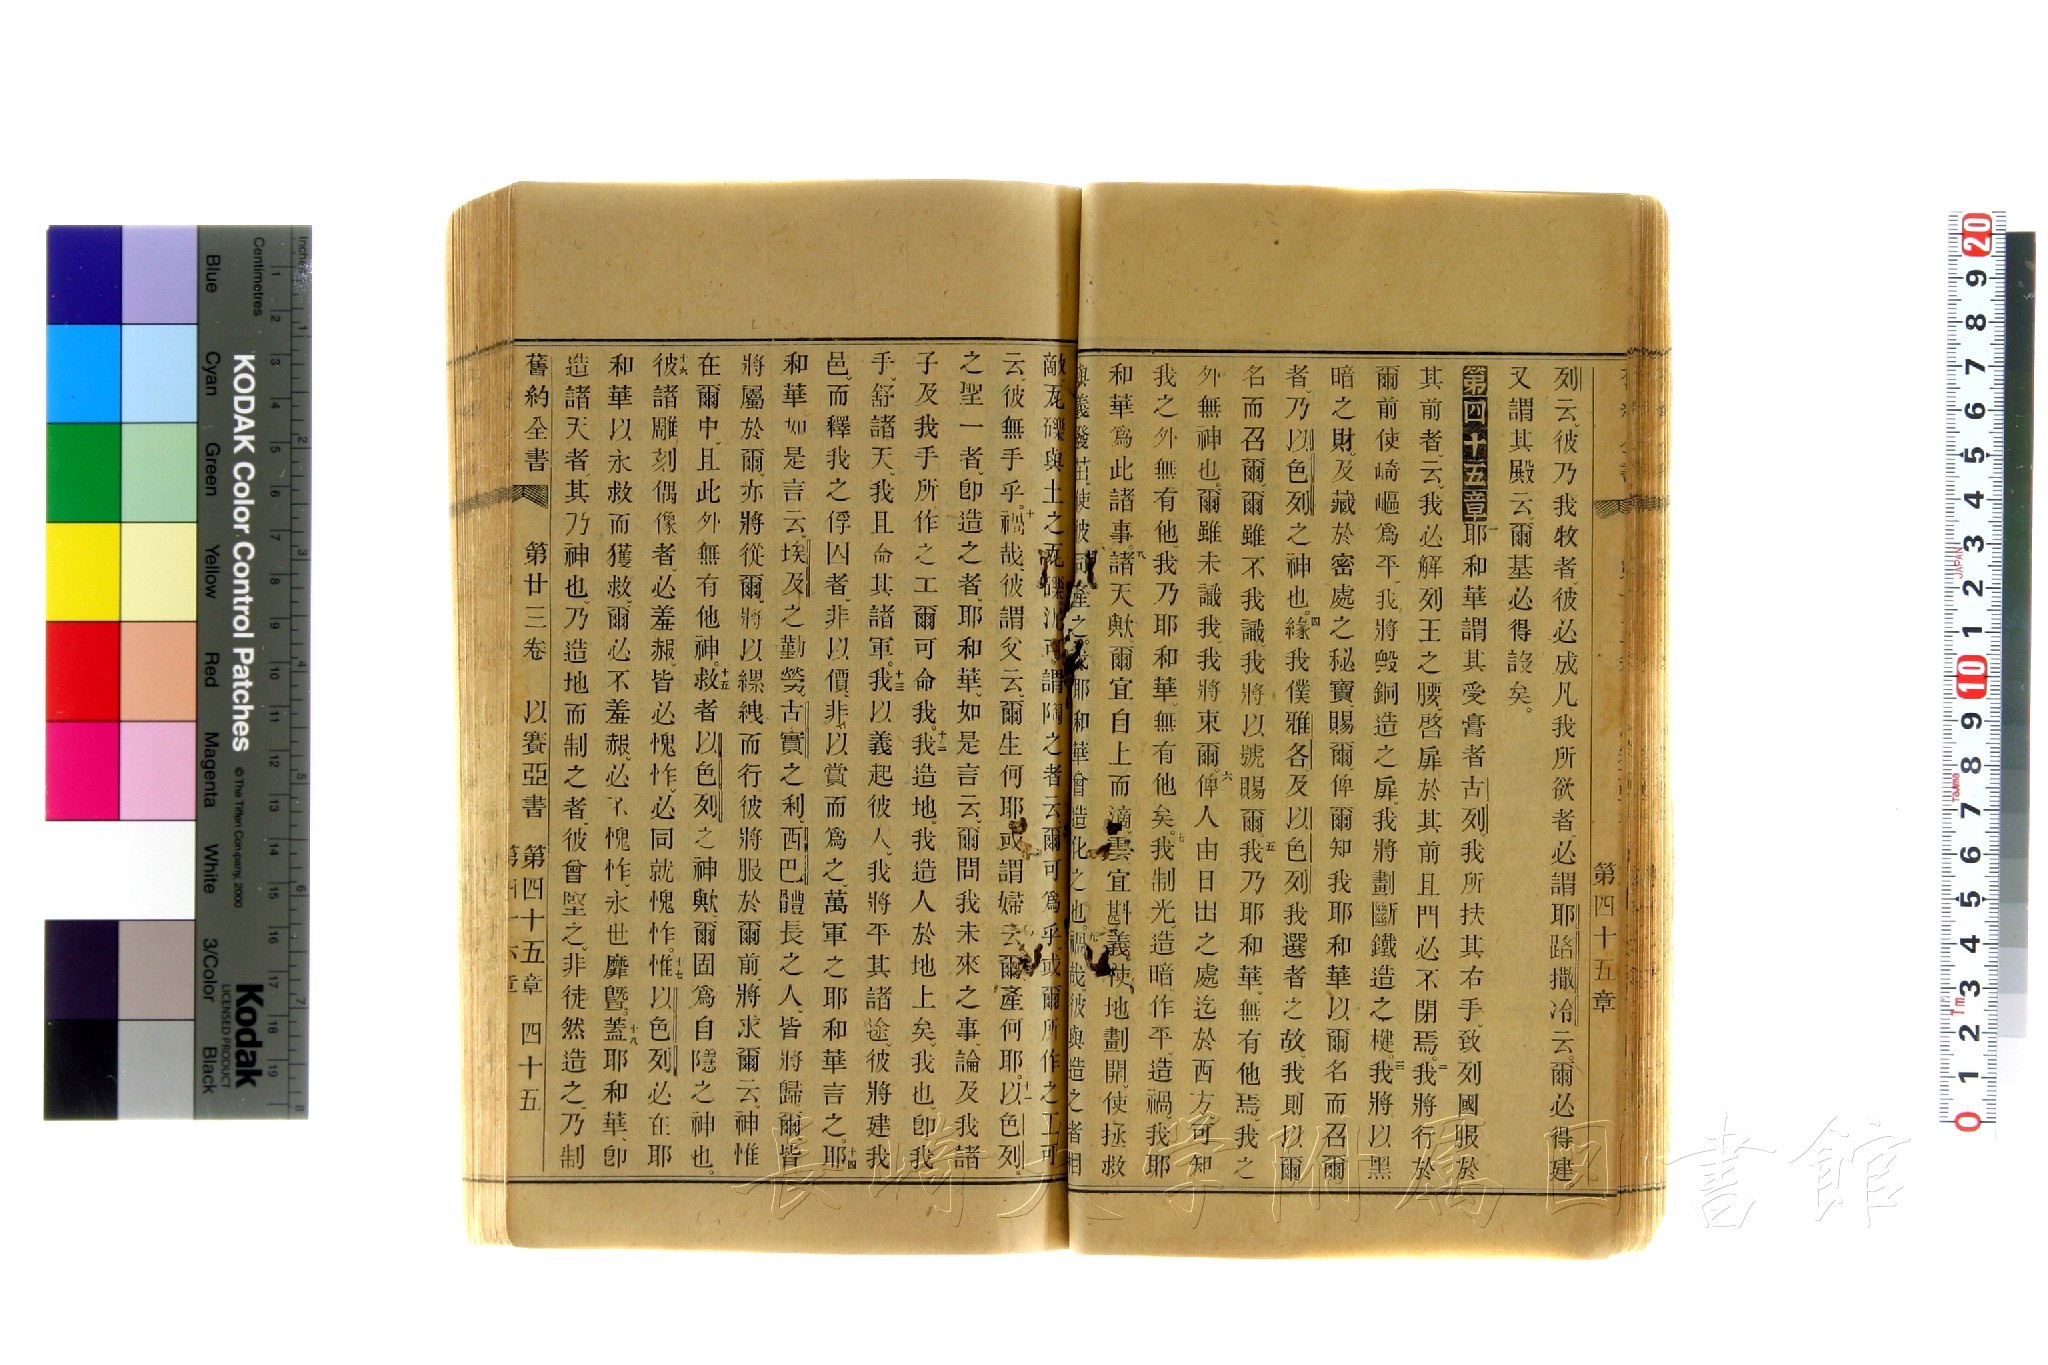 第四十五章
列云、彼乃我牧者、彼必成凡我所欲者、必謂耶路撒冷云、爾必得建
又謂其殿云、爾基必得設矣。
第四十五章 一耶和華謂其受膏者古列、我所扶其右手、致列國服於
其前者云、我必解列王之腰、啓扉於其前、且門必不閉焉。二我將行於
爾前、使崎嶇爲平、我將毀銅造之扉、我將劃斷鐵造之楗。三我將以黑
暗之財、及藏於密處之秘寶賜爾、俾爾知我耶和華、以爾名而召爾
者、乃以色列之神也。四緣我僕雅各、及以色列我選者之故、我則以爾
名而召爾、爾雖不我識、我將以號賜爾。五我乃耶和華、無有他焉、我之
外無神也、爾雖未識我、我將束爾、六俾人由日出之處迄於西方、可知
我之外無有他、我乃耶和華、無有他矣。七我制光、造暗、作平、造禍、我耶
和華爲此諸事。八諸天歟、爾宜自上而滴、雲宜斟義、使地劃開、使拯救
與義發茁、使彼同產之、我耶和華曾造化之也。九禍哉、彼與造之者相
敵、瓦礫與土之瓦礫、泥可謂陶之者云、爾可爲乎、或爾所作之工可
云、彼無手乎。十禍哉、彼謂父云、爾生何耶、或謂婦云、爾產何耶。十一以色列
之聖一者、卽造之者、耶和華、如是言云、爾問我未來之事、論及我諸
子、及我手所作之工、爾可命我。十二我造地、我造人於地上矣、我也、卽我
手、舒諸天、我且命其諸軍。十三我以義起彼人、我將平其諸途、彼將建我
邑、而釋我之俘囚者、非以價、非以賞而爲之、萬軍之耶和華言之。十四耶
和華如是言云、埃及之勤勞、古實之利、西巴體長之人、皆將歸爾、皆
將屬於爾、亦將從爾、將以縲絏而行、彼將服於爾前、將求爾云、神惟
在爾中、且此外無有他神。十五救者以色列之神歟、爾固爲自隱之神也。
十六彼諸雕刻偶像者、必羞赧、皆必愧怍、必同就愧怍。十七惟以色列必在耶
和華以永救而獲救、爾必不羞赧、必不愧怍、永世靡曁。十八蓋耶和華、卽
造諸天者、其乃神也、乃造地而制之者、彼曾堅之、非徒然造之、乃制
舊約全書 第廿三卷 以賽亞書 第四十五章 四十五
長崎大学附属図書館
KODAK Color Control Patches
©The Tiffen Company, 2000
Kodak
LICENSED PRODUCT
Inches
Centimetres
Blue
Cyan
Green
Yellow
Red
Magenta
White
3/Color
Black
1 2 3 4 5 6 7 8 9 10 11 12 13 14 15 16 17 18 19
20 9 8 7 6 5 4 3 2 1 10 9 8 7 6 5 4 3 2 1 0
JAPAN
Tajima
1m